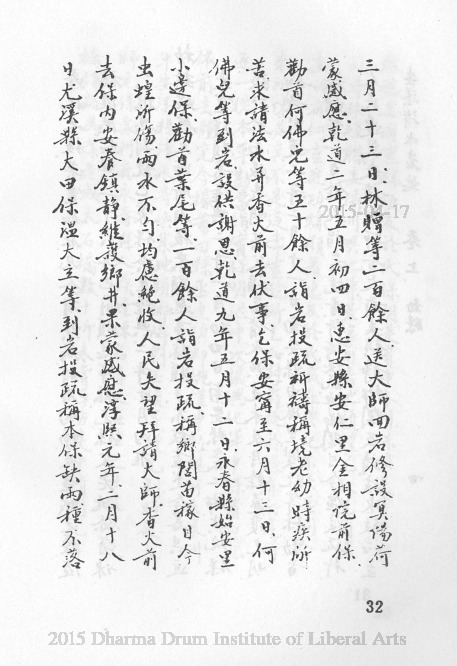 三月二十三日、林贈等二百餘人、送大師回岩修設冥陽、荷
蒙感應、乾道二年五月初四日、惠安縣安仁里金相院前保、
勸首何佛兒等五十餘人、詣岩投疏祈禱、稱境老幼時疾所
苦、求請法水、并香火前去伏事、乞保安寧、至六月十三日、何
佛兒等到岩設供謝恩、乾道九年五月十二日、永春縣始安里
小邊保、勸首葉尾等、一百餘人詣岩投疏、稱鄉閭苗稼、日今
虫蝗所傷、雨水不勻、均應絕收、人民失望、拜請大師、香火前
去保內安奉、鎮靜維護鄉井、果蒙感應、淳熙元年、二月十八
日尤溪縣大田保溫大立等、到岩投疏、稱本保缺雨、種不落
32
2015-04-17
2015 Dharma Drum Institute of Liberal Arts